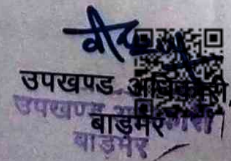 उपखण्ड अधिकारी,
बाड़मेर
उपखण्ड अधिकारी
बाड़मेर